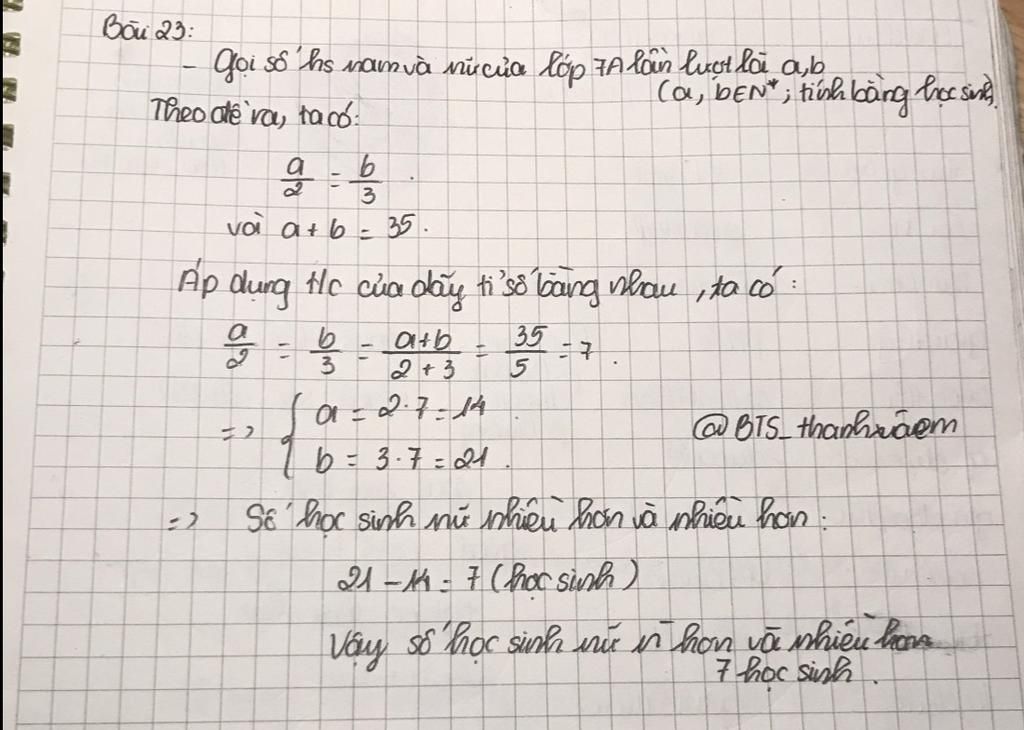 Bài 23:
- Gọi số hs nam và nữ của lớp 7A lần lượt là a, b
(a, b ∈ N*; tính bằng học sinh)
Theo đề ra, ta có:
a/2 = b/3.
và a + b = 35.
Áp dụng t/c của dãy tỉ số bằng nhau, ta có:
a/2 = b/3 = a+b/2+3 = 35/5 = 7.
=> { a = 2.7 = 14.
b = 3.7 = 21.
@BTS_thanhxuâem
=> Số học sinh nữ nhiều hơn và nhiều hơn:
21 - 14 = 7 (học sinh)
Vậy số học sinh nữ n hơn và nhiều hơn
7 học sinh.